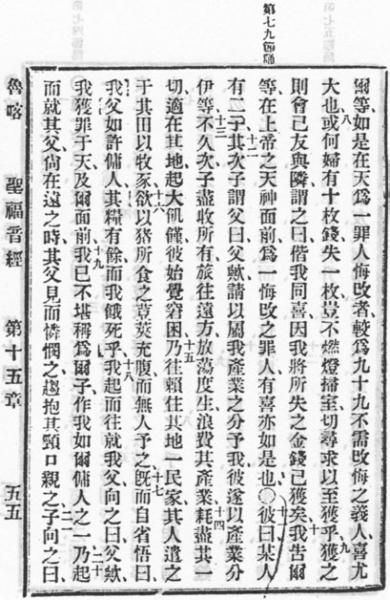 第七九圖誦
爾等如是在天爲一罪人悔改者較爲九十九不需改悔之義人喜尤
大也八或何婦有十枚錢失一枚豈不燃燈掃室切尋求以至獲乎九獲之
則會己友與隣謂之曰偕我同喜因我將所失之金錢已獲矣十我告爾
等在上帝之天神面前爲一悔改之罪人有喜亦如是也〇十一彼曰某人
有二子十二其次子謂父曰父歟請以屬我產業之分予我彼遂以產業分
伊等十三不久次子盡收所有旅往遠方放蕩度生浪費其產業十四耗盡其一
切適在其地起大飢僅彼始覺窘困十五乃往賴住其地一民家其人遣之
于其田以牧豕十六欲以猪所食之荳莢充腹而無人予之十七旣而自省悟曰
我父如許傭人其糧有餘而我餓死乎十八我起而往就我父向之曰父歟
我獲罪于天及爾面前十九我已不堪稱爲爾子作我如爾傭人之一二十乃起
而就其父尚在遠之時其父見而憐憫之趨抱其頸口親之二一子向之曰
魯喀 聖福音經 第十五章 五五